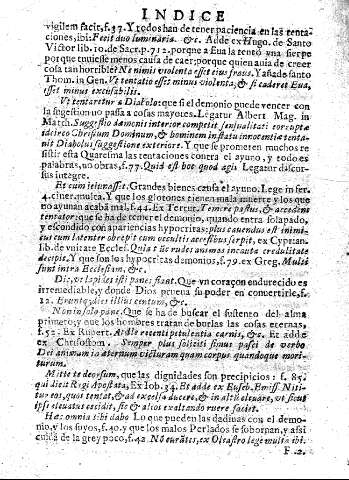 INDICE
vigilem facit, f.37. Y todos han de tener paciencia en las tenta-
ciones, ibi: Fecit duo luminaria. &c. Adde ex Hugo. de Santo
Victor lib. 10. de Sacr. p. 712. porque a Eua la tentò vna sierpe
porque tuuiesse menos causa de caer; porque quien auia de creer
cosa tan horrible? Ne nimis violenta esset eius fraus. Y añade santo
Thom. in Gen. Vt tentatio esset minus violenta, & si caderet Eua,
esset minus excusabilis.
Vt tentaretur a Diabolo: que si el demonio puede vencer con
la sugestion no passa a cosas mayores. Legatur Albert Mag. in
Match. Suggestio dæmonis interior competit sensualitati corruptæ
idcirco Christum Dominum, & hominem in statu innocentiæ tenta-
uit Diabolus suggestione exteriore. Y que se prometen muchos re
sistir esta Quaresma las tentaciones contra el ayuno, y todo es
palabras, no obras, f.77. Quid est hoc quod agis Legatur discur-
sus integre.
Et cum ieiunasset. Grandes bienes causa el ayuno. Lege in fer.
4. ciner. multa. Y que los glotones tienen mala muerte y los que
no ayunan acabã mal, f.44. Ex Tertur. Temere pastus, & accedens
tentator: que se ha de temer el demonio, quando entra solapado,
y escondido con apariencias hypocritas; plus cauendus est inimi-
cus cum latenter obrepit cum occulti accessibus serpit, ex Cyprian.
lib. de vnitate Eccles. Quia tùc rudes animos incauta credulitate
decipit. Y que son los hypocritas demonios, f.79. ex Greg. Multi
sunt intra Ecclesiam, &c.
Dic, vt lapides isti panes fiant. Que vn coraçon endurecido es
irremediable, y donde Dios prueua su poder en conuertirle, f.
12. Eruntq; dies illius centum, &c.
Non in solo pane. Que se ha de buscar el sustento del alma
primero; y que los hombres tratan de burlas las cosas eternas,
f.52. Ex Rubert. Adde recenti petulentia carnis, &c. Et adde
ex Chrisostom. Semper plus soliciti simus pasci de verbo
Dei animam in æternum victuram quam corpus quandoque mori-
turum.
Mitte te deorsum, que las dignidades son precipicios: f. 85.
qui dicit Regi Apostata, Ex Iob. 34. Et adde ex Euseb. Emiss. Niti-
tur eos, quos tentat, & ad excelsa ducere, & in alta eleuare, vt sicut
ipse eleuatus cecidit, sic & alios exaltando ruere faciet.
Hæc omnia tibi dabo. Lo que pueden las dadiuas con el demo-
nio, y los suyos, f.40. y que los malos Perlados se sobornan, y assi
cuidã de la grey poco, f.42. Nõ curãtes, ex Oleastro lege multa ibi.
F 2.